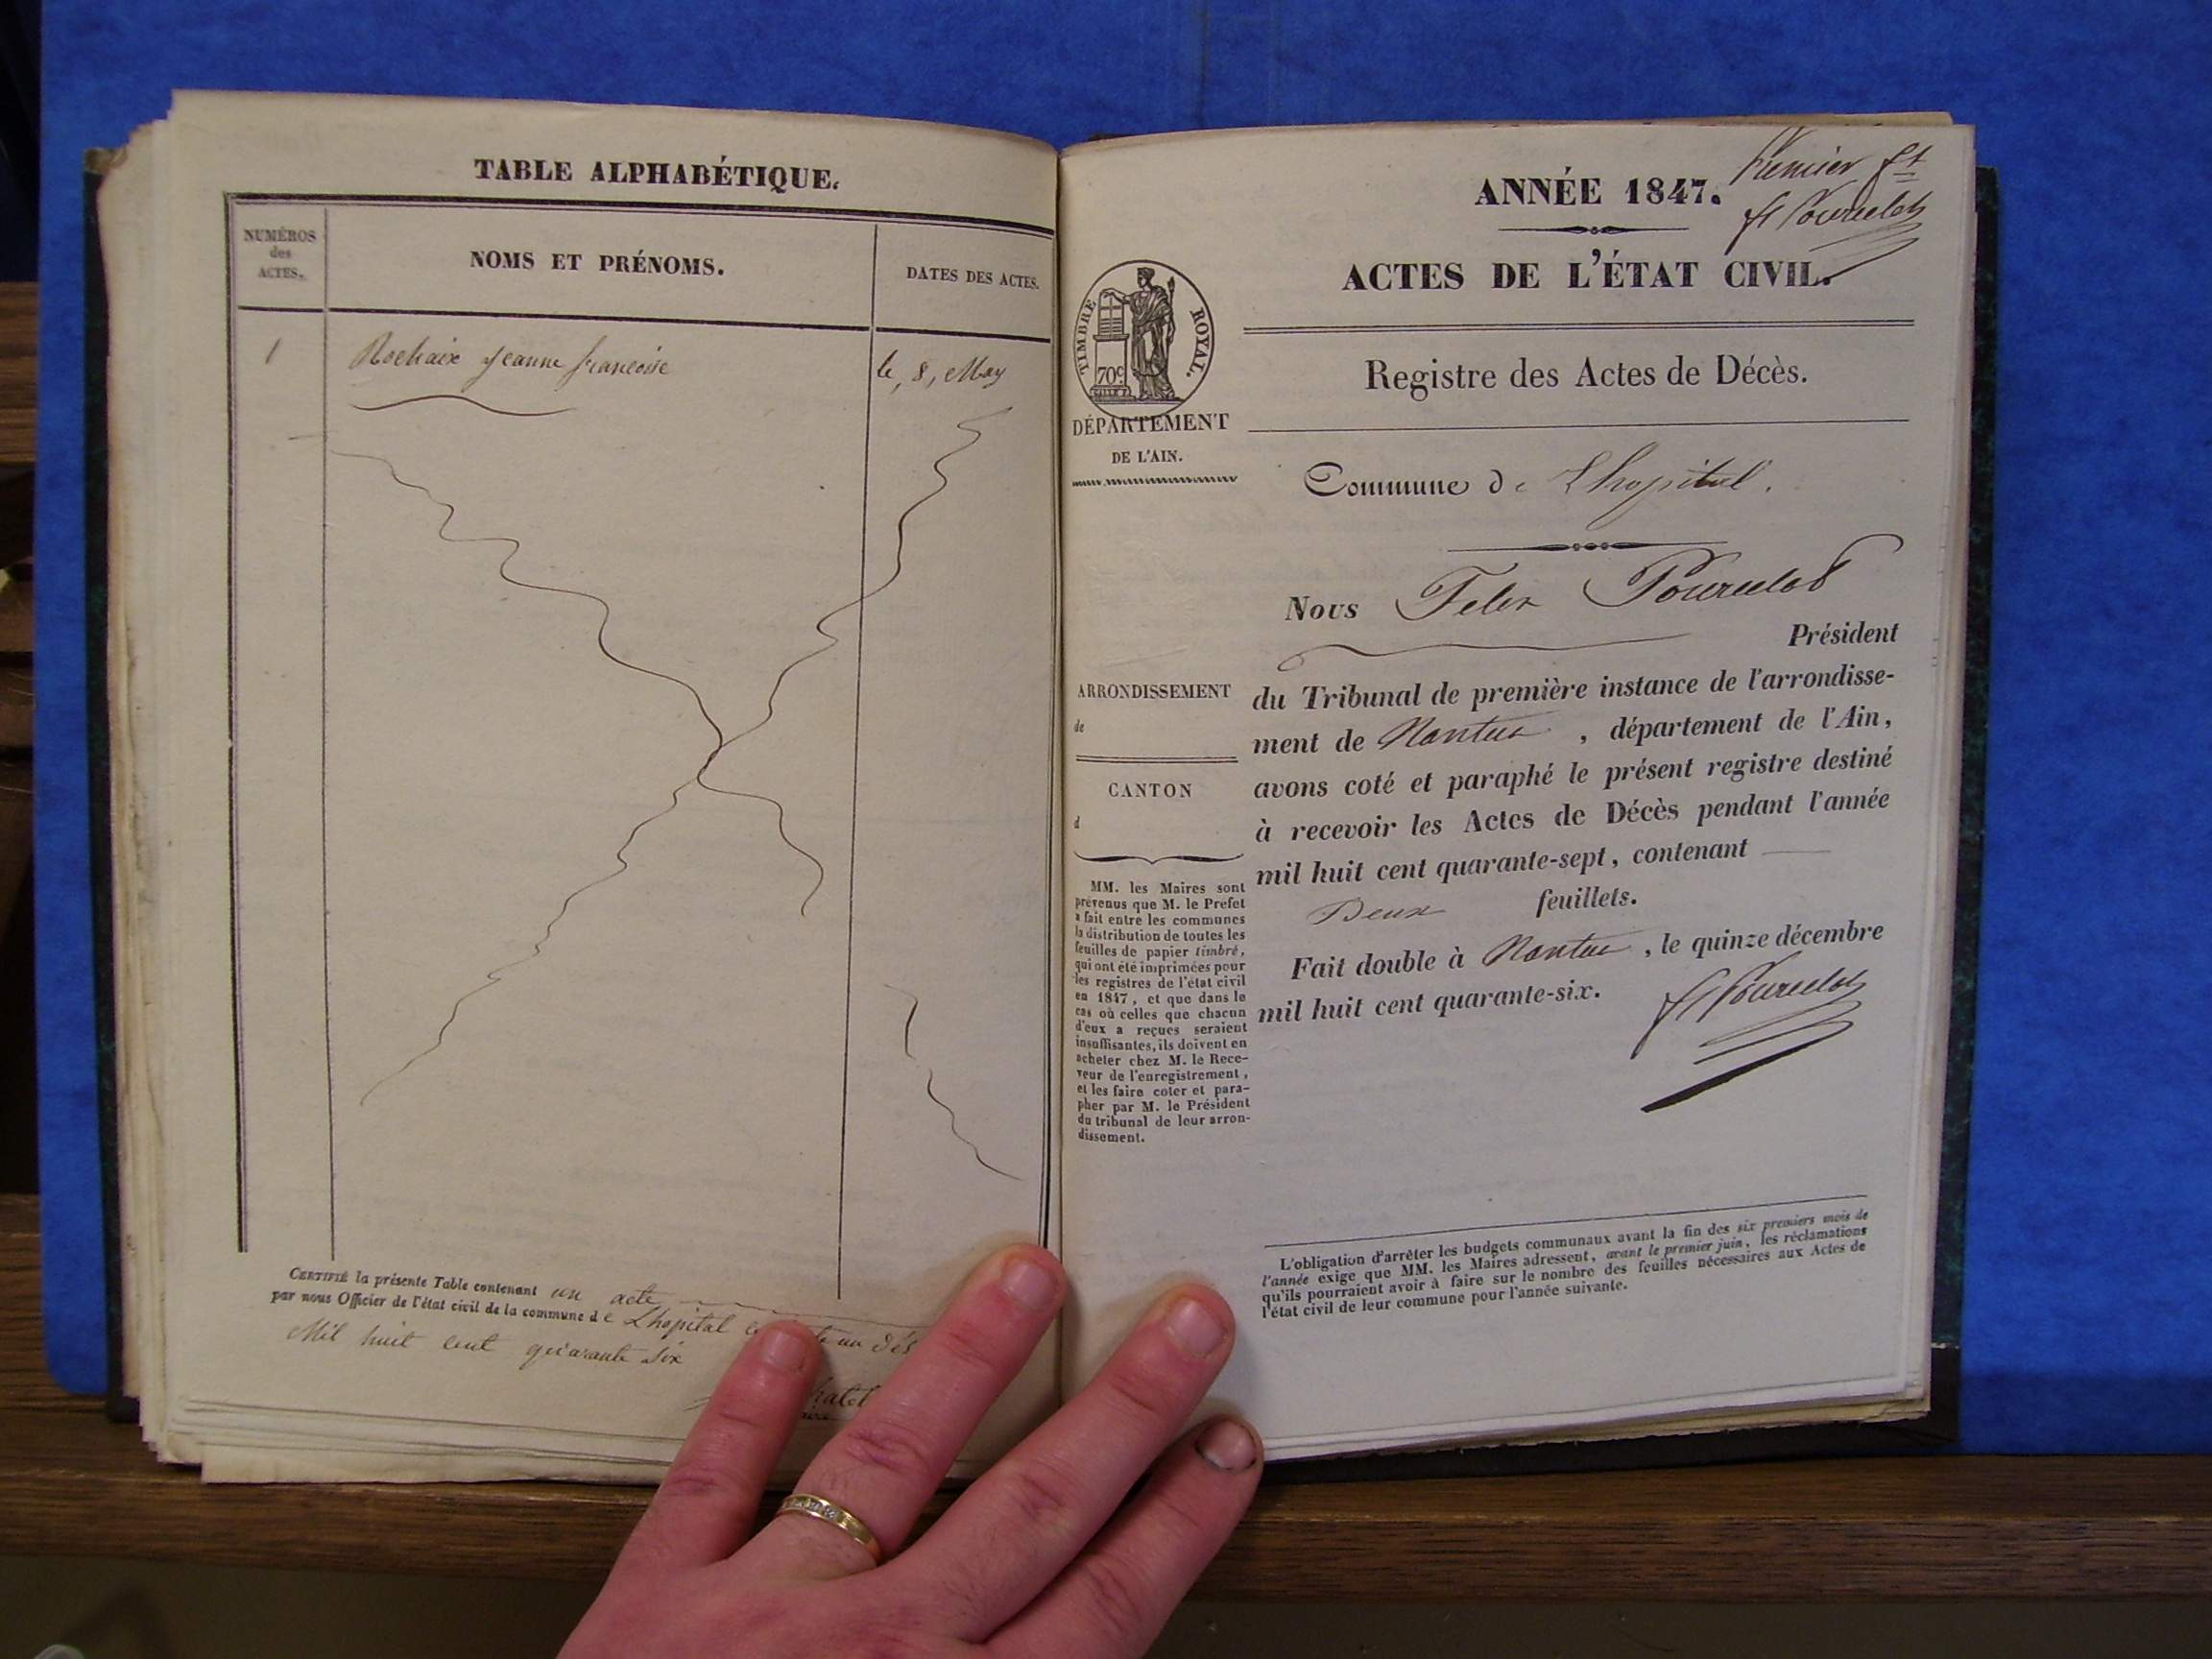 TABLE ALPHABÉTIQUE.
NUMÉROS
des
ACTES.
NOMS ET PRÉNOMS.
DATES DES ACTES.
1
Rochaix Jeanne francoise
le, 8, May
CERTIFIÉ la présente Table contenant un acte
par nous Officier de l'état civil de la commune de Lhopital
Mil huit cent quarante six
ANNÉE 1847.
Premier ft
ft Pourcelot
ACTES DE L'ÉTAT CIVIL.
TIMBRE ROYAL.
70c
DÉPARTEMENT
DE L'AIN.
Registre des Actes de Décès.
Commune de Lhopital.
Nous Felix Pourcelot
Président
ARRONDISSEMENT
de
CANTON
d
MM. les Maires sont
prévenus que M. le Prefet
a fait entre les communes
la distribution de toutes les
feuilles de papier timbré,
qui ont été imprimées pour
les registres de l'état civil
en 1847, et que dans le
cas où celles que chacun
d'eux a reçues seraient
insuffisantes, ils doivent en
acheter chez M. le Rece-
veur de l'enregistrement,
et les faire coter et para-
pher par M. le Président
du tribunal de leur arron-
dissement.
du Tribunal de première instance de l'arrondisse-
ment de Nantua, département de l'Ain,
avons coté et paraphé le présent registre destiné
à recevoir les Actes de Décès pendant l'année
mil huit cent quarante-sept, contenant
Deux feuillets.
Fait double à Nantua, le quinze décembre
mil huit cent quarante-six.
ft Pourcelot
L'obligation d'arrêter les budgets communaux avant la fin des six premiers mois de
l'année exige que MM. les Maires adressent, avant le premier juin, les réclamations
qu'ils pourraient avoir à faire sur le nombre des feuilles nécessaires aux Actes de
l'état civil de leur commune pour l'année suivante.